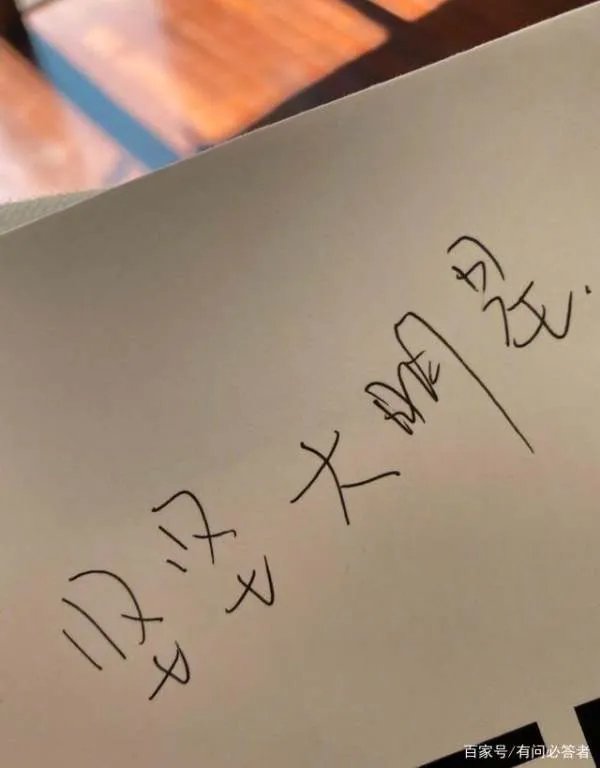 大明星.
百家号/有问必答者